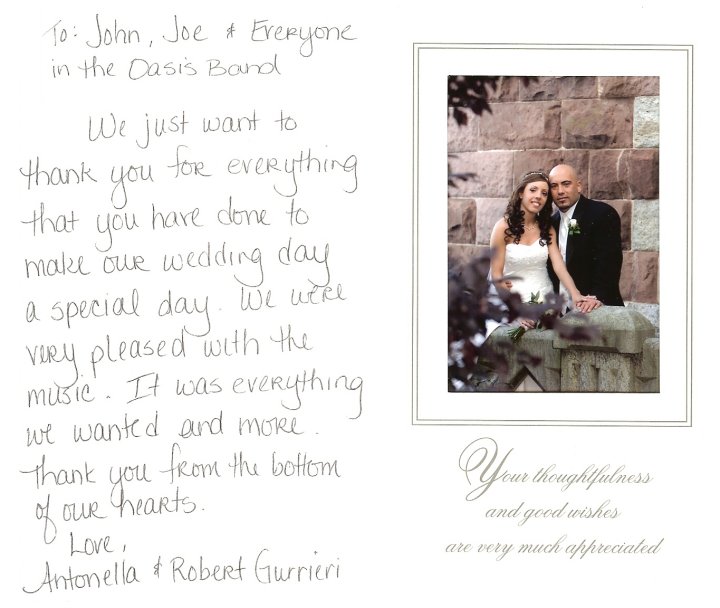 To: John, Joe & Everyone
in the Oasis Band
We just want to
thank you for everything
that you have done to
make our wedding day
a special day. We were
very pleased with the
music. It was everything
we wanted and more.
Thank you from the bottom
of our hearts.
Love,
Antonella & Robert Gurrieri
Your thoughtfulness
and good wishes
are very much appreciated